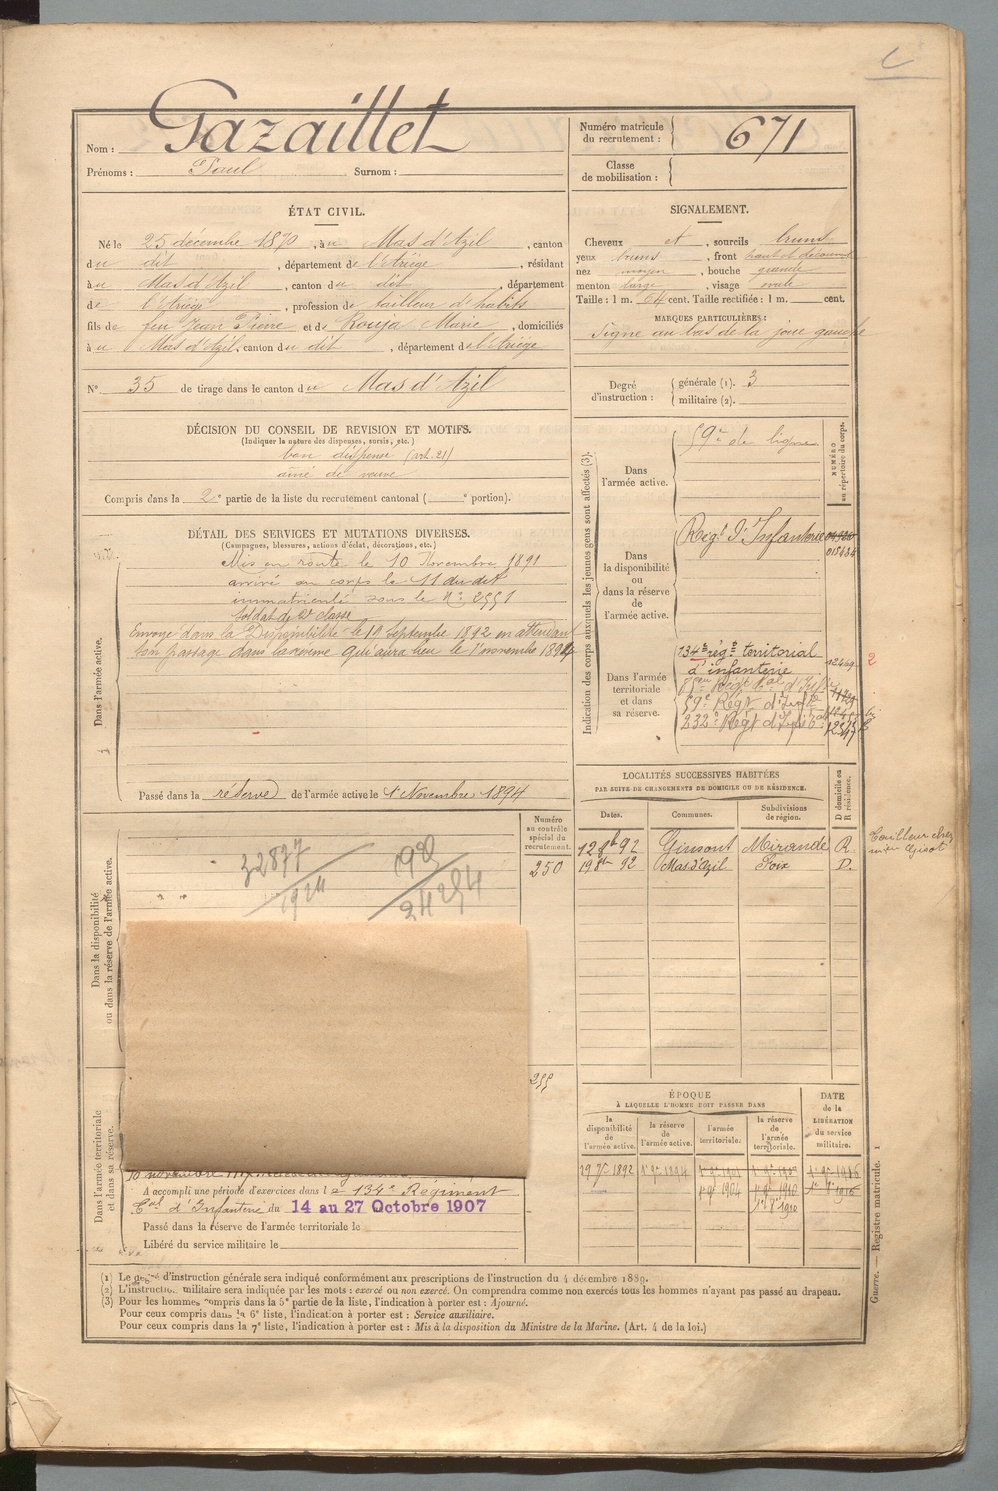 Nom : Gazaillet
Prénoms : Paul Surnom :
Numéro matricule du recrutement : 671
Classe de mobilisation :
ÉTAT CIVIL.
Né le 25 décembre 1870, à u Mas d'Azil, canton
du dit, département de l'Ariège, résidant
à u Mas d'Azil, canton du dit, département
de l'Ariège, profession de tailleur d'habits
fils de feu Jean Pierre et de Rouja Marie, domiciliés
à u Mas d'Azil, canton du dit, département de l'Ariège
N° 35 de tirage dans le canton du Mas d'Azil
SIGNALEMENT.
Cheveux et, sourcils bruns
yeux bruns, front haut et découvert
nez moyen, bouche grande
menton large, visage ovale
Taille : 1 m. 64 cent. Taille rectifiée : 1 m. cent.
MARQUES PARTICULIÈRES :
Signe au bas de la joue gauche
Degré d'instruction : générale (1). 3
militaire (2).
DÉCISION DU CONSEIL DE REVISION ET MOTIFS.
(Indiquer la nature des dispenses, sursis, etc.)
bon dispensé (art. 21)
aîné de veuve
Compris dans la 2e partie de la liste du recrutement cantonal ( e portion).
DÉTAIL DES SERVICES ET MUTATIONS DIVERSES.
(Campagnes, blessures, actions d'éclat, décorations, etc.)
Dans l'armée active.
Mis en route le 10 Novembre 1891
arrivé au corps le 11 du dit
immatriculé sous le N° 2551
Soldat de 2e classe
Envoyé dans la Disponibilité le 19 Septembre 1892 en attendant
son passage dans la réserve qui aura lieu le 1er novembre 1894
Passé dans la réserve de l'armée active le 1er Novembre 1894
Indication des corps auxquels les jeunes gens sont affectés (3).
NUMÉRO au répertoire du corps.
Dans l'armée active.
59e de ligne
Dans la disponibilité ou dans la réserve de l'armée active.
Régt d'Infanterie
Dans l'armée territoriale et dans sa réserve.
134e régt territorial
d'infanterie
59e Régt d'Infie
232e Régt
2
LOCALITÉS SUCCESSIVES HABITÉES
PAR SUITE DE CHANGEMENTS DE DOMICILE OU DE RÉSIDENCE.
Dates. Communes. Subdivisions de région. D domicile ou R résidence.
12 8bre 92 Gimont Mirande R
19 8bre 92 Mas d'Azil Foix D.
Numéro au contrôle spécial du recrutement.
250
Dans la disponibilité ou dans la réserve de l'armée active.
32877
1924
255
Dans l'armée territoriale et dans sa réserve.
A accompli une période d'exercices dans le 134e Régiment
Tal d'Infanterie du 14 au 27 Octobre 1907
Passé dans la réserve de l'armée territoriale le
Libéré du service militaire le
ÉPOQUE
À LAQUELLE L'HOMME DOIT PASSER DANS
la disponibilité de l'armée active. la réserve de l'armée active. l'armée territoriale. la réserve de l'armée territoriale. DATE de la LIBÉRATION du service militaire.
(1) Le degré d'instruction générale sera indiqué conformément aux prescriptions de l'instruction du 4 décembre 1889.
(2) L'instruction militaire sera indiquée par les mots : exercé ou non exercé. On comprendra comme non exercés tous les hommes n'ayant pas passé au drapeau.
(3) Pour les hommes compris dans la 5e partie de la liste, l'indication à porter est : Ajourné.
Pour ceux compris dans la 6e liste, l'indication à porter est : Service auxiliaire.
Pour ceux compris dans la 7e liste, l'indication à porter est : Mis à la disposition du Ministre de la Marine. (Art. 4 de la loi.)
Guerre. — Registre matricule. 1